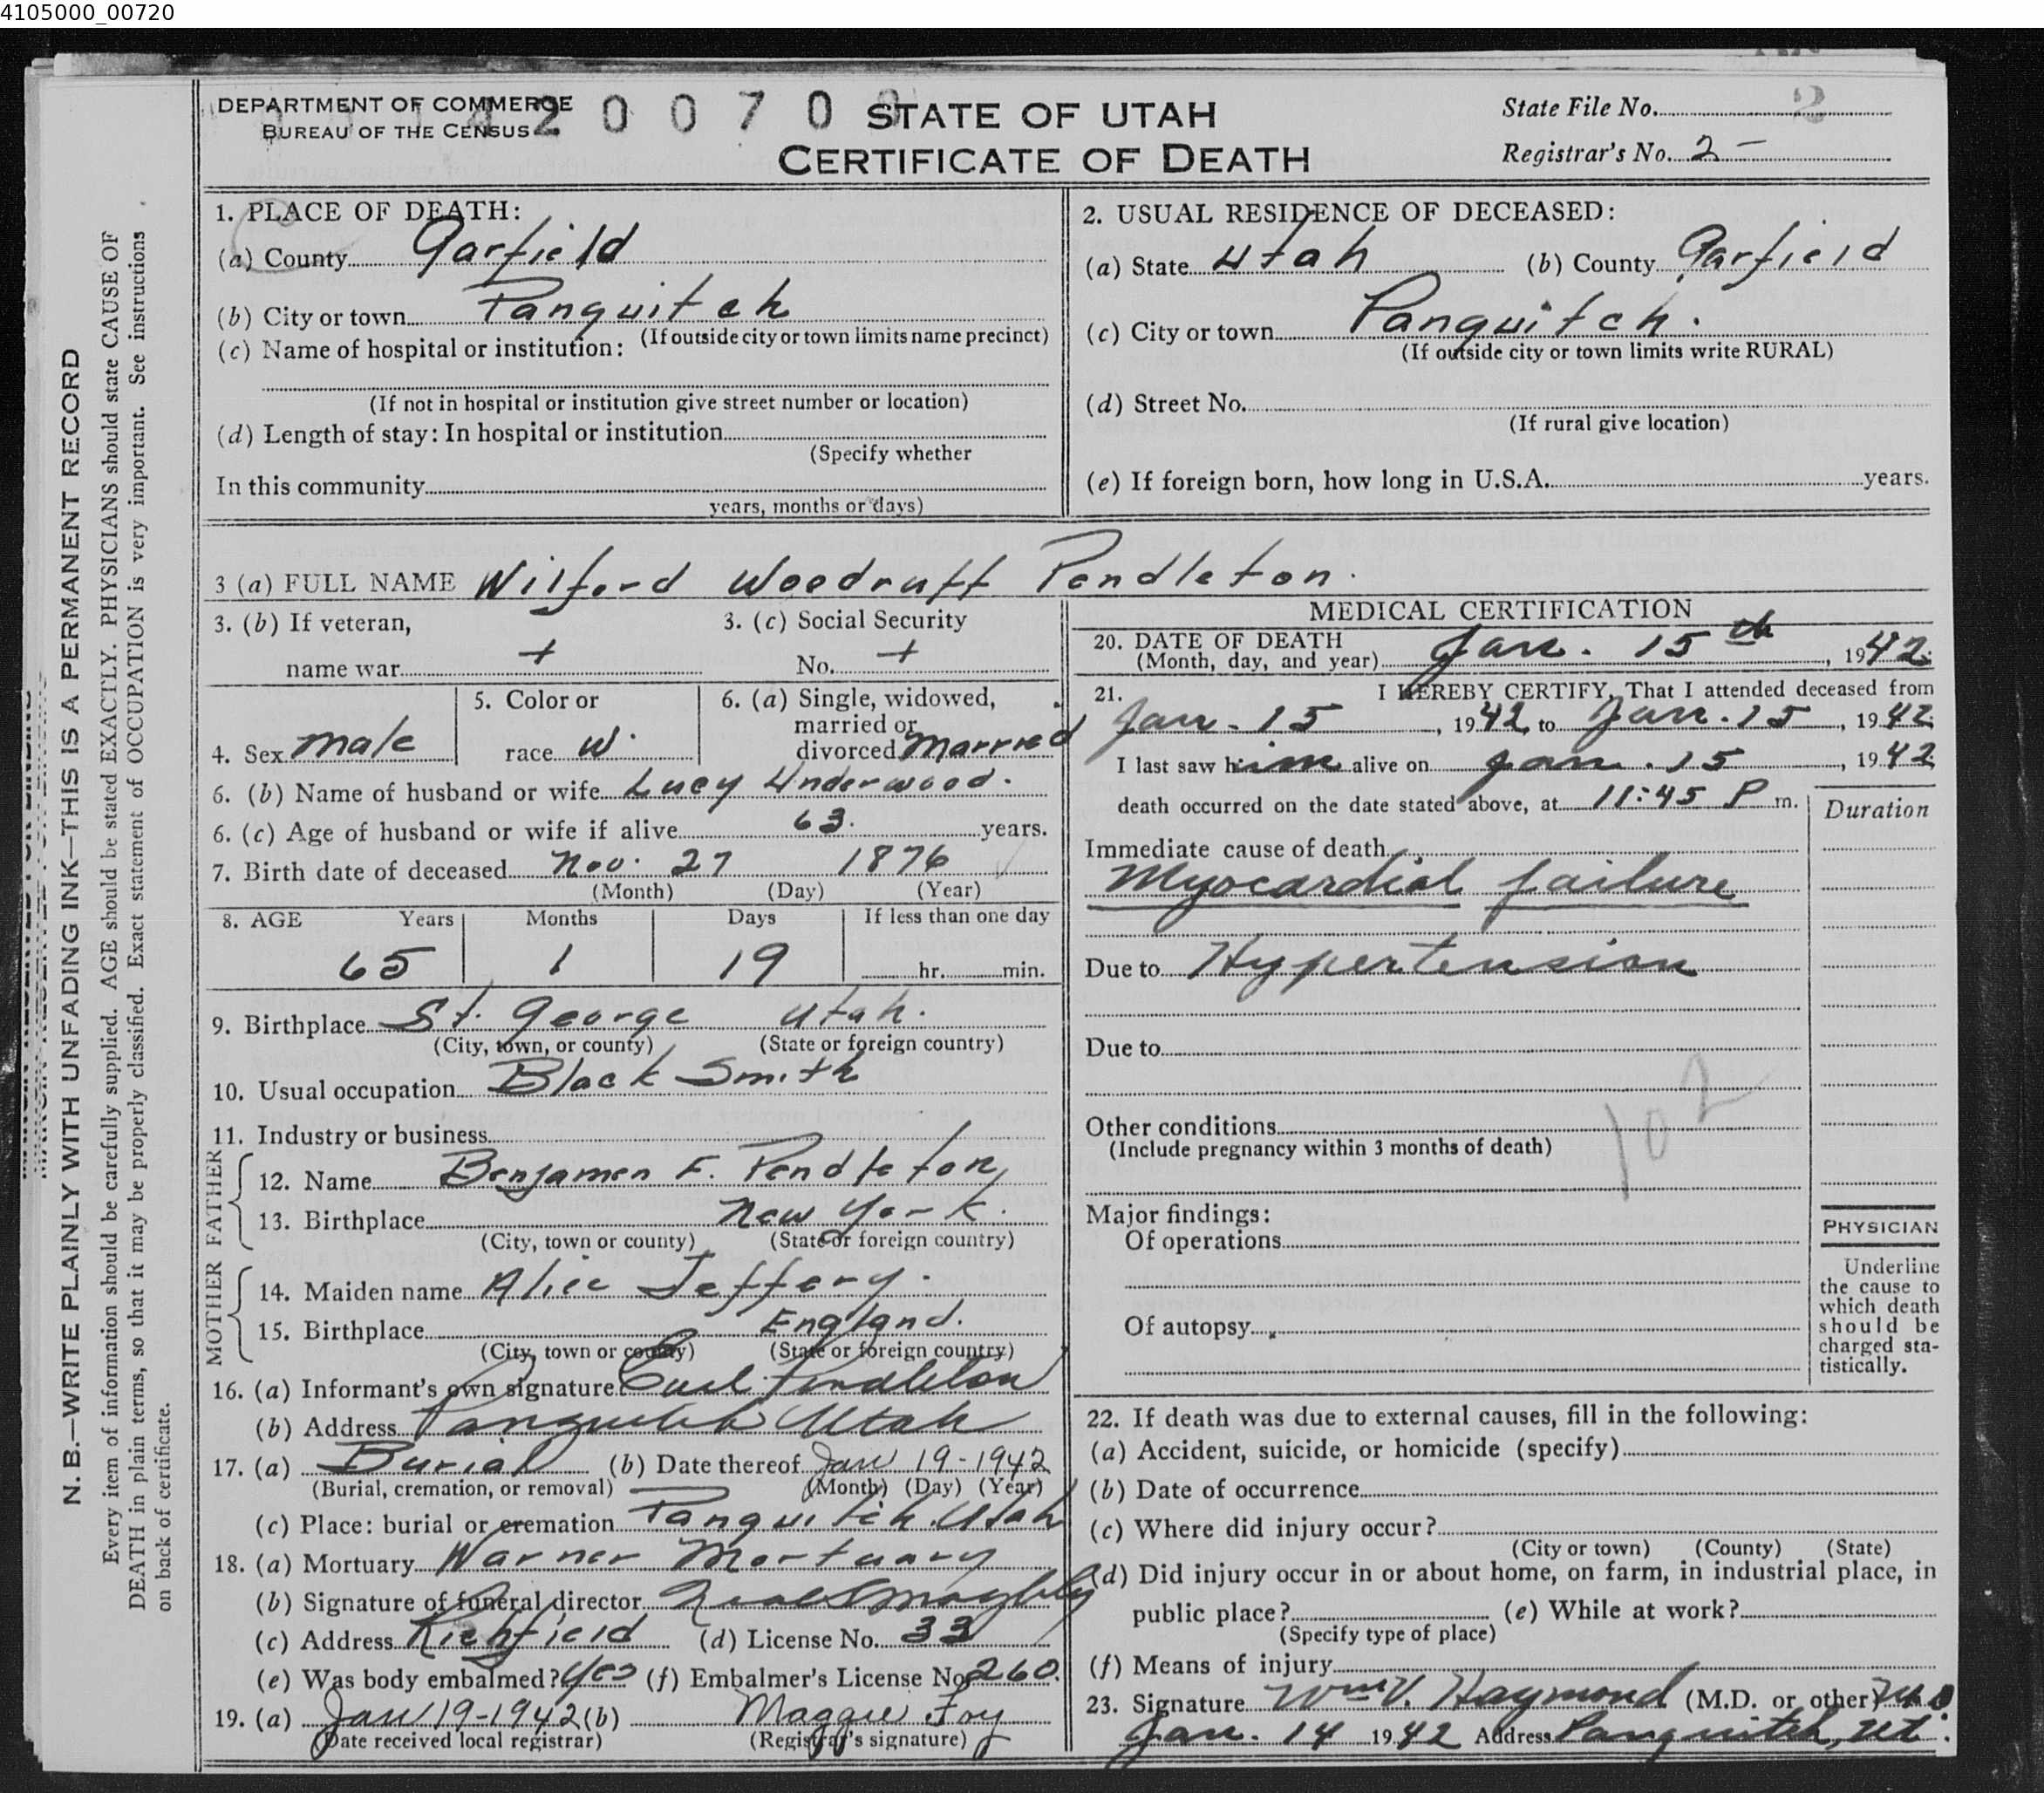 4105000_00720
DEPARTMENT OF COMMERCE
BUREAU OF THE CENSUS
2 0 0 7 0
STATE OF UTAH
CERTIFICATE OF DEATH
State File No. 2
Registrar's No. 2 -
N. B.—WRITE PLAINLY WITH UNFADING INK—THIS IS A PERMANENT RECORD
Every item of information should be carefully supplied. AGE should be stated EXACTLY. PHYSICIANS should state CAUSE OF
DEATH in plain terms, so that it may be properly classified. Exact statement of OCCUPATION is very important. See instructions
on back of certificate.
1. PLACE OF DEATH:
(a) County Garfield
(b) City or town Panguitch
(If outside city or town limits name precinct)
(c) Name of hospital or institution:
(If not in hospital or institution give street number or location)
(d) Length of stay: In hospital or institution
(Specify whether
In this community
years, months or days)
2. USUAL RESIDENCE OF DECEASED:
(a) State Utah (b) County Garfield
(c) City or town Panguitch.
(If outside city or town limits write RURAL)
(d) Street No.
(If rural give location)
(e) If foreign born, how long in U.S.A. years.
3 (a) FULL NAME Wilford Woodruff Pendleton.
3. (b) If veteran,
name war +
3. (c) Social Security
No. +
4. Sex Male
5. Color or
race W.
6. (a) Single, widowed,
married or
divorced Married
6. (b) Name of husband or wife Lucy Underwood.
6. (c) Age of husband or wife if alive 63. years.
7. Birth date of deceased Nov. 27 1876
(Month) (Day) (Year)
8. AGE Years Months Days If less than one day
65 1 19 hr. min.
9. Birthplace St. George Utah.
(City, town, or county) (State or foreign country)
10. Usual occupation Black Smith
11. Industry or business
FATHER
12. Name Benjamen F. Pendleton
13. Birthplace New York.
(City, town or county) (State or foreign country)
MOTHER
14. Maiden name Alice Jeffery.
15. Birthplace England.
(City, town or county) (State or foreign country)
16. (a) Informant's own signature Pendleton
(b) Address Panguitch Utah
17. (a) Burial (b) Date thereof Jan 19-1942
(Burial, cremation, or removal) (Month) (Day) (Year)
(c) Place: burial or cremation Panguitch Utah
18. (a) Mortuary Warner Mortuary
(b) Signature of funeral director
(c) Address Richfield (d) License No. 33
(e) Was body embalmed? Yes (f) Embalmer's License No 260.
19. (a) Jan 19-1942 (b) Maggie Foy
(Date received local registrar) (Registrar's signature)
MEDICAL CERTIFICATION
20. DATE OF DEATH
(Month, day, and year) Jan. 15th, 1942
21. I HEREBY CERTIFY, That I attended deceased from
Jan. 15, 1942 to Jan. 15, 1942
I last saw him alive on Jan. 15, 1942
death occurred on the date stated above, at 11:45 P m.
Duration
Immediate cause of death
Myocardial failure
Due to Hypertension
Due to
102
Other conditions
(Include pregnancy within 3 months of death)
Major findings:
Of operations
Of autopsy
PHYSICIAN
Underline
the cause to
which death
should be
charged sta-
tistically.
22. If death was due to external causes, fill in the following:
(a) Accident, suicide, or homicide (specify)
(b) Date of occurrence
(c) Where did injury occur?
(City or town) (County) (State)
(d) Did injury occur in or about home, on farm, in industrial place, in
public place? (e) While at work?
(Specify type of place)
(f) Means of injury
23. Signature Wm V. Haymond (M.D. or other) M.D.
Jan. 14 1942 Address Panguitch, Ut.